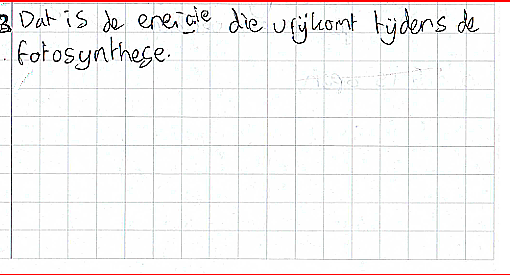 3 Dat is de energie die vrijkomt tijdens de
fotosynthese.